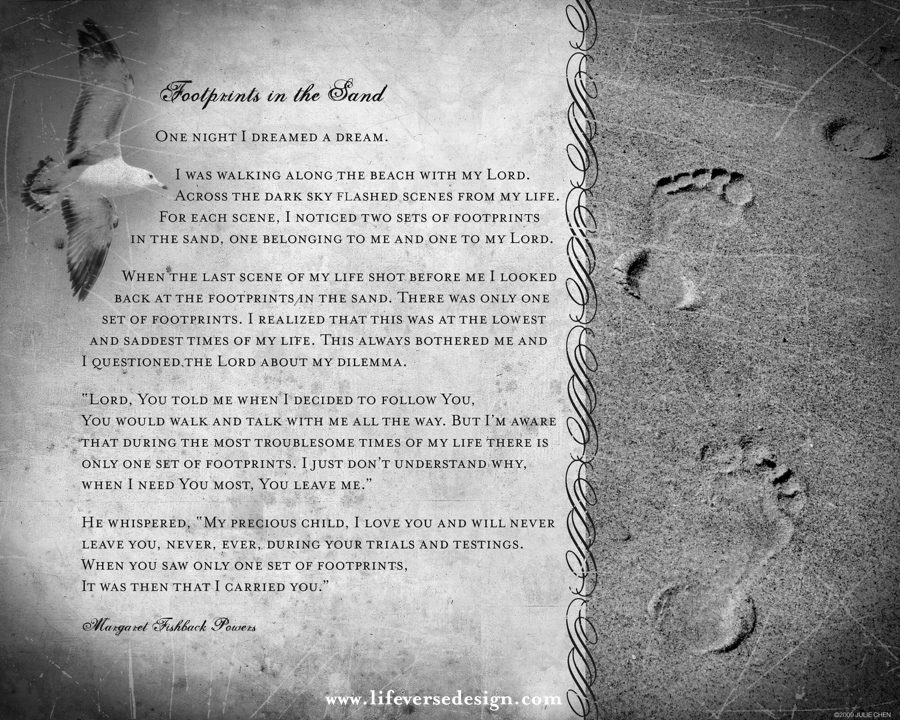 Footprints in the Sand
One night I dreamed a dream.
I was walking along the beach with my Lord.
Across the dark sky flashed scenes from my life.
For each scene, I noticed two sets of footprints
in the sand, one belonging to me and one to my Lord.
When the last scene of my life shot before me I looked
back at the footprints in the sand. There was only one
set of footprints. I realized that this was at the lowest
and saddest times of my life. This always bothered me and
I questioned the Lord about my dilemma.
"Lord, You told me when I decided to follow You,
You would walk and talk with me all the way. But I'm aware
that during the most troublesome times of my life there is
only one set of footprints. I just don't understand why,
when I need You most, You leave me."
He whispered, "My precious child, I love you and will never
leave you, never, ever, during your trials and testings.
When you saw only one set of footprints,
It was then that I carried you."
Margaret Fishback Powers
www.lifeversedesign.com
©2009 JULIE CHEN